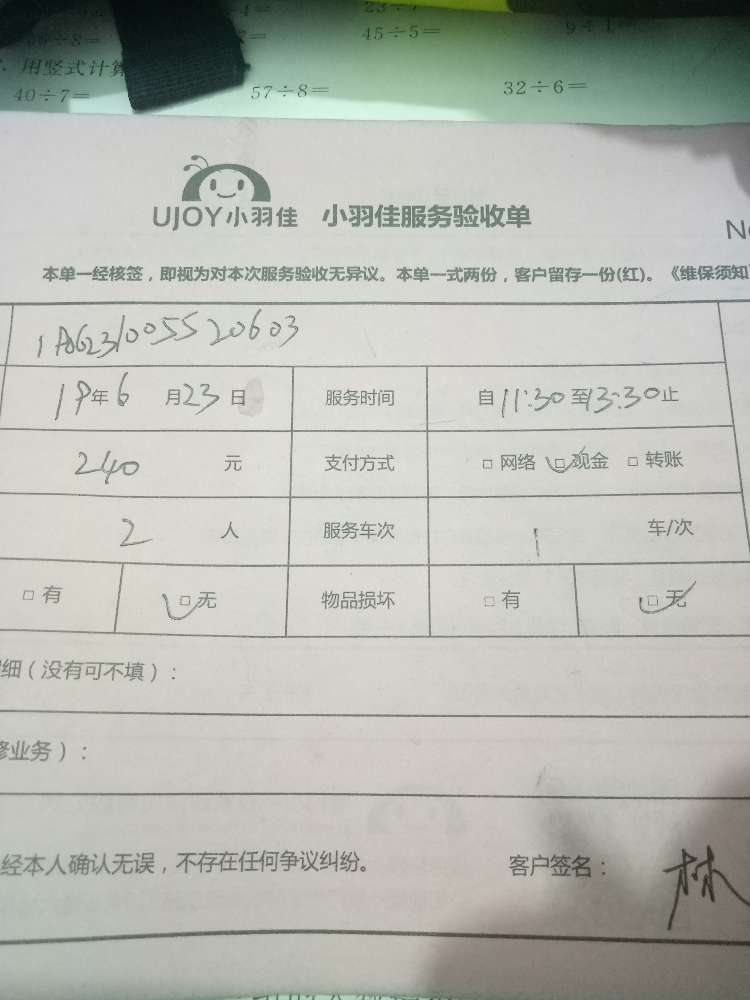 45÷5=
用竖式计算
40÷7= 57÷8= 32÷6=
UJOY小羽佳 小羽佳服务验收单
本单一经核签，即视为对本次服务验收无异议。本单一式两份，客户留存一份(红)。《维保须知
19年6月23日 服务时间 自11:30至13:30止
240元 支付方式 □网络 □现金 □转账
2人 服务车次 1车/次
□有 □无 物品损坏 □有 □无
细（没有可不填）：
修业务）：
经本人确认无误，不存在任何争议纠纷。 客户签名：林